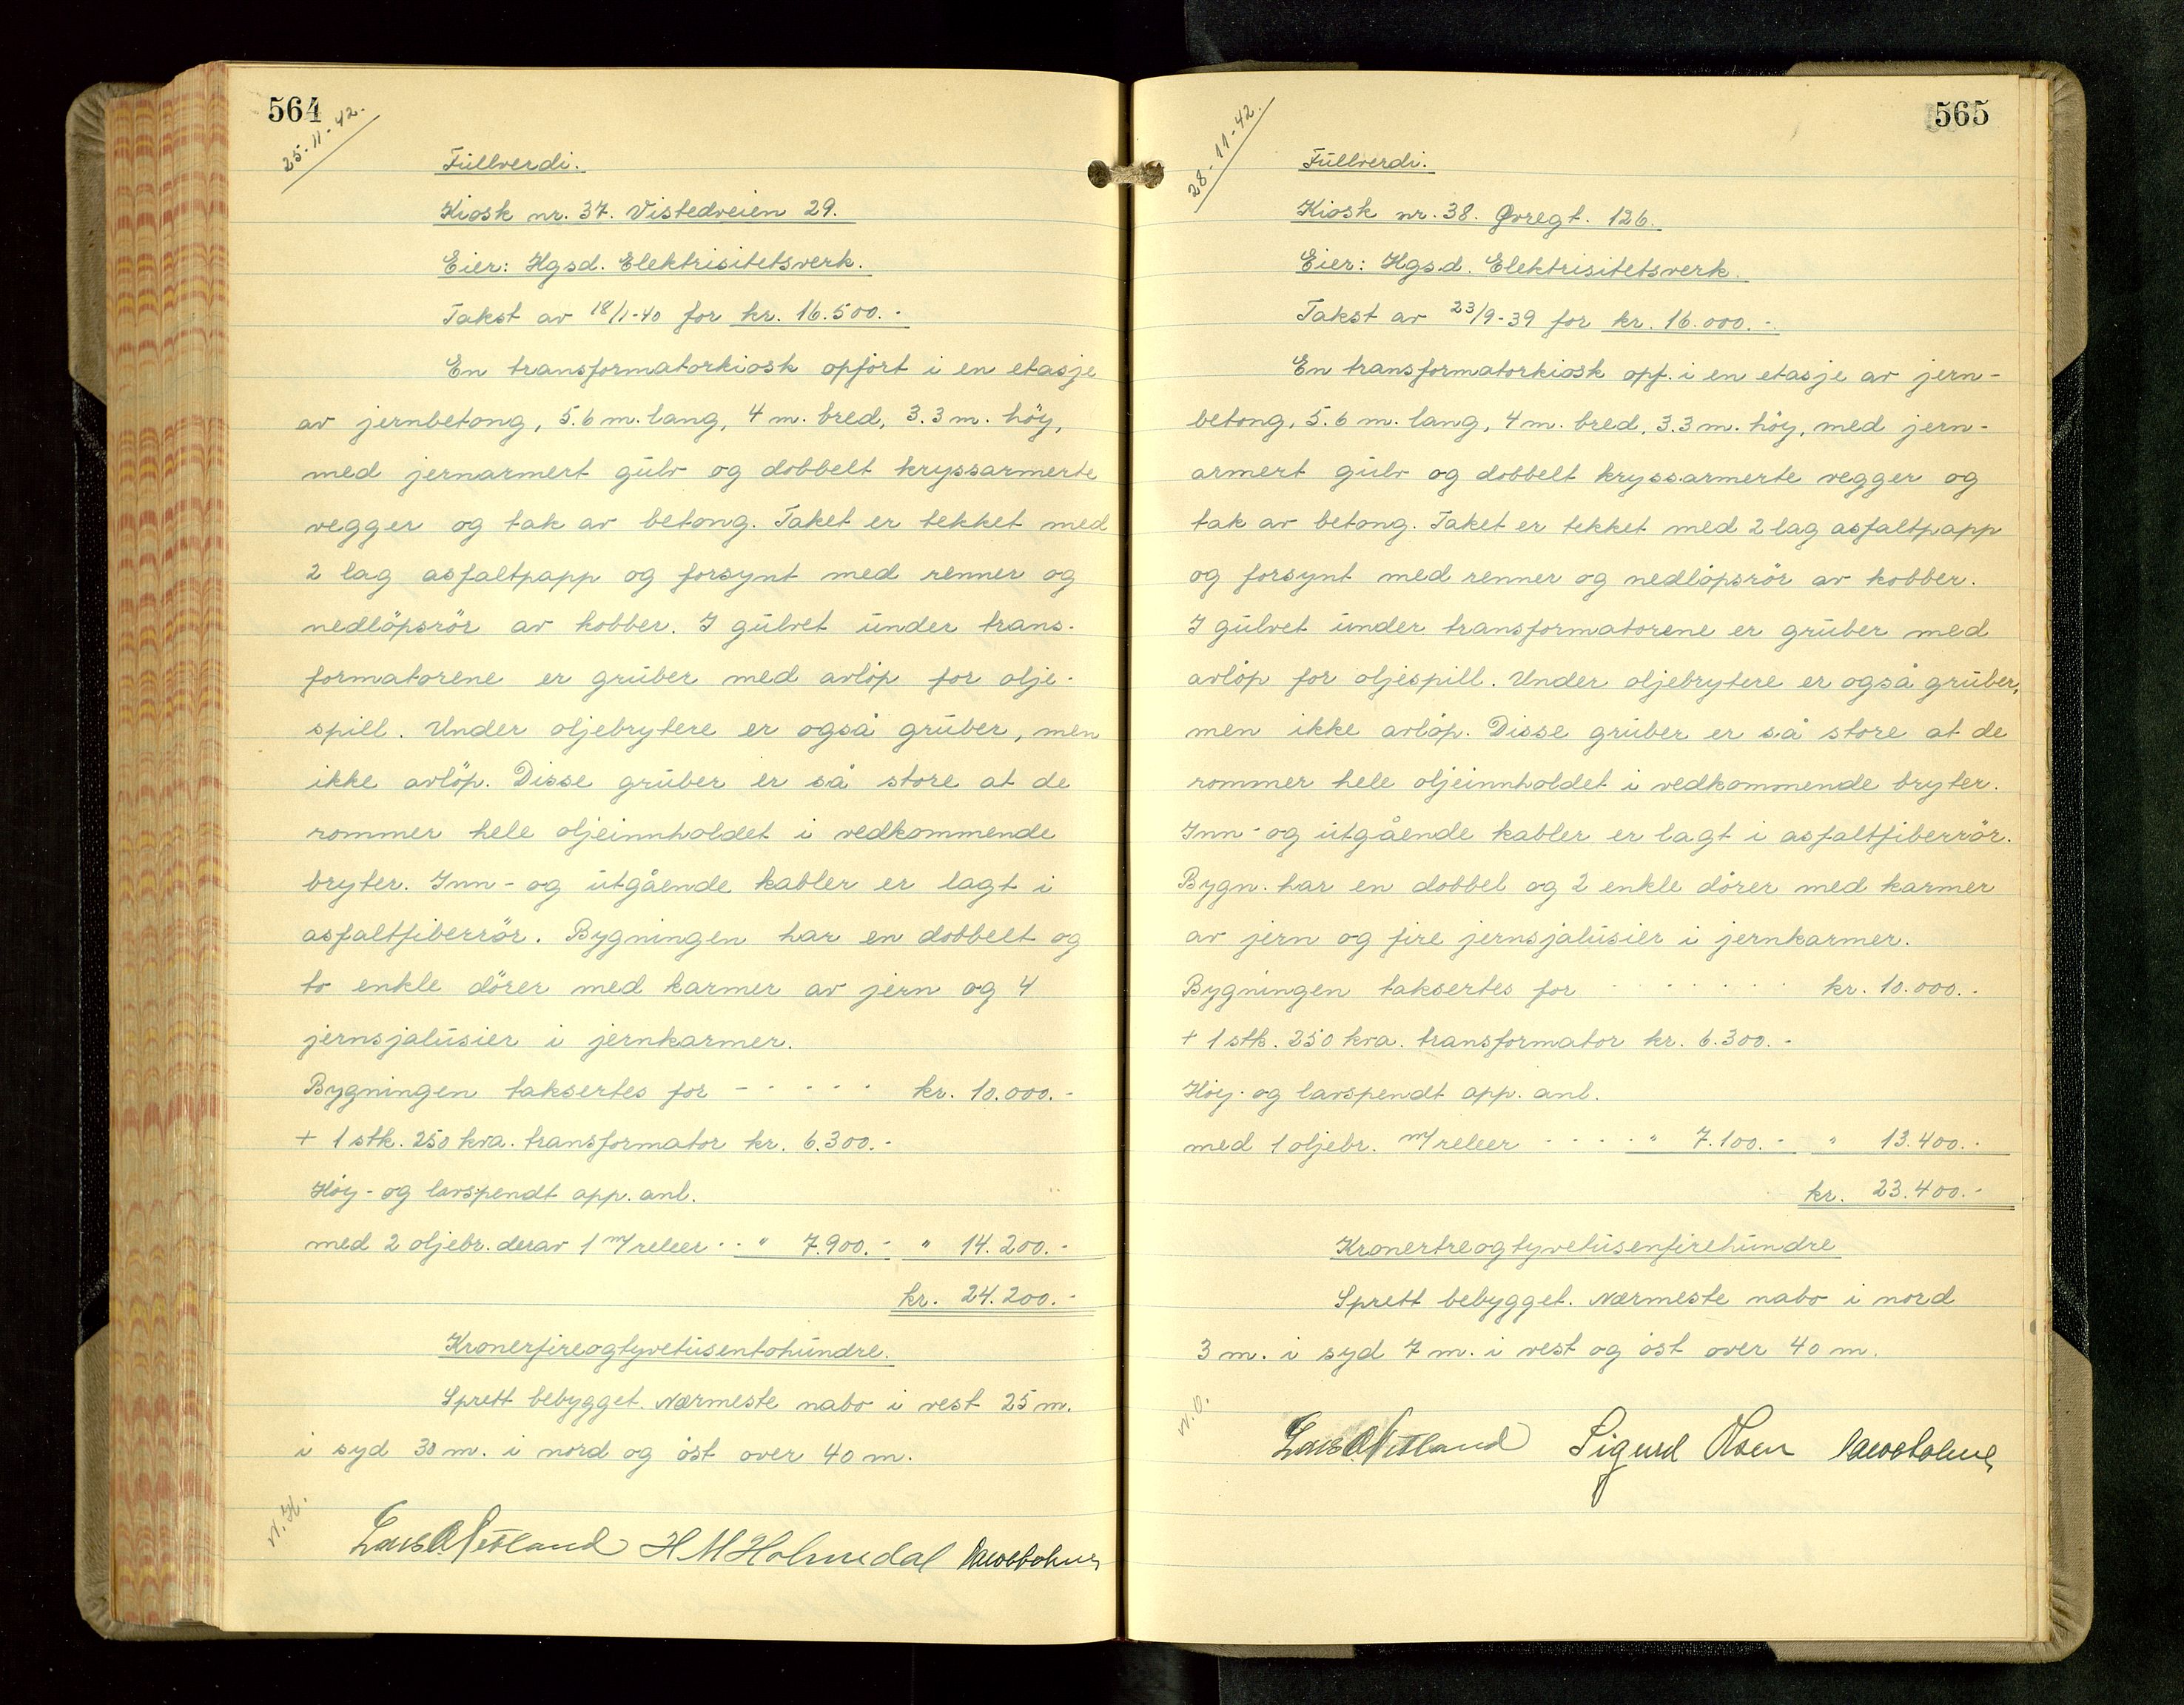 564
25-11-42.
Fullverdi.
Kiosk nr. 37. Vistedveien 29.
Eier: Hgsd. Elektrisitetsverk.
Takst av 18/1-40 for kr. 16.500.-
En transformatorkiosk opfört i en etasje
av jernbetong, 5.6 m. lang, 4 m. bred, 3.3 m. höy,
med jernarmert gulv og dobbelt kryssarmerte
vegger og tak av betong. Taket er tekket med
2 lag asfaltpapp og forsynt med renner og
nedlöpsrör av kobber. I gulvet under trans-
formatorene er gruber med avlöp for olje-
spill. Under oljebrytere er også gruber, men
ikke avlöp. Disse gruber er så store at de
rommer hele oljeinnholdet i vedkommende
bryter. Inn- og utgående kabler er lagt i
asfaltfiberrör. Bygningen har en dobbelt og
to enkle dörer med karmer av jern og 4
jernsjalusier i jernkarmer.
Bygningen taksertes for - - - - - kr. 10.000.-
+ 1 stk. 250 kva. transformator kr. 6.300.-
Höy- og lavspendt app. anl.
med 2 oljebr. derav 1 m/releer - - " 7.900.- " 14.200.-
kr. 24.200.-
Kronerfireogtyvetusentohundre.
Sprett bebygget. Nærmeste nabo i vest 25 m.
i syd 30 m. i nord og öst over 40 m.
N. H.
Lars O. Vetland H M Holmedal
565
28-11-42.
Fullverdi.
Kiosk nr. 38. Øvregt. 126.
Eier: Hgsd. Elektrisitetsverk.
Takst av 23/9-39 for kr. 16.000.-
En transformatorkiosk opf. i en etasje av jern-
betong, 5.6 m. lang, 4 m. bred, 3.3 m. höy, med jern-
armert gulv og dobbelt kryssarmerte vegger og
tak av betong. Taket er tekket med 2 lag asfaltpapp
og forsynt med renner og nedlöpsrör av kobber.
I gulvet under transformatorene er gruber med
avlöp for oljespill. Under oljebrytere er også gruber,
men ikke avlöp. Disse gruber er så store at de
rommer hele oljeinnholdet i vedkommende bryter.
Inn- og utgående kabler er lagt i asfaltfiberrör.
Bygn. har en dobbel og 2 enkle dörer med karmer
av jern og fire jernsjalusier i jernkarmer.
Bygningen taksertes for - - - - - - kr. 10.000.-
+ 1 stk. 250 kva. transformator kr. 6.300.-
Höy- og lavspendt app. anl.
med 1 oljebr. m/releer - - - - " 7.100.- " 13.400.-
kr. 23.400.-
Kronertreogtyvetusenfirehundre
Sprett bebygget. Nærmeste nabo i nord
3 m. i syd 7 m. i vest og öst over 40 m.
N. O.
Lars O. Vetland Sigurd Olsen